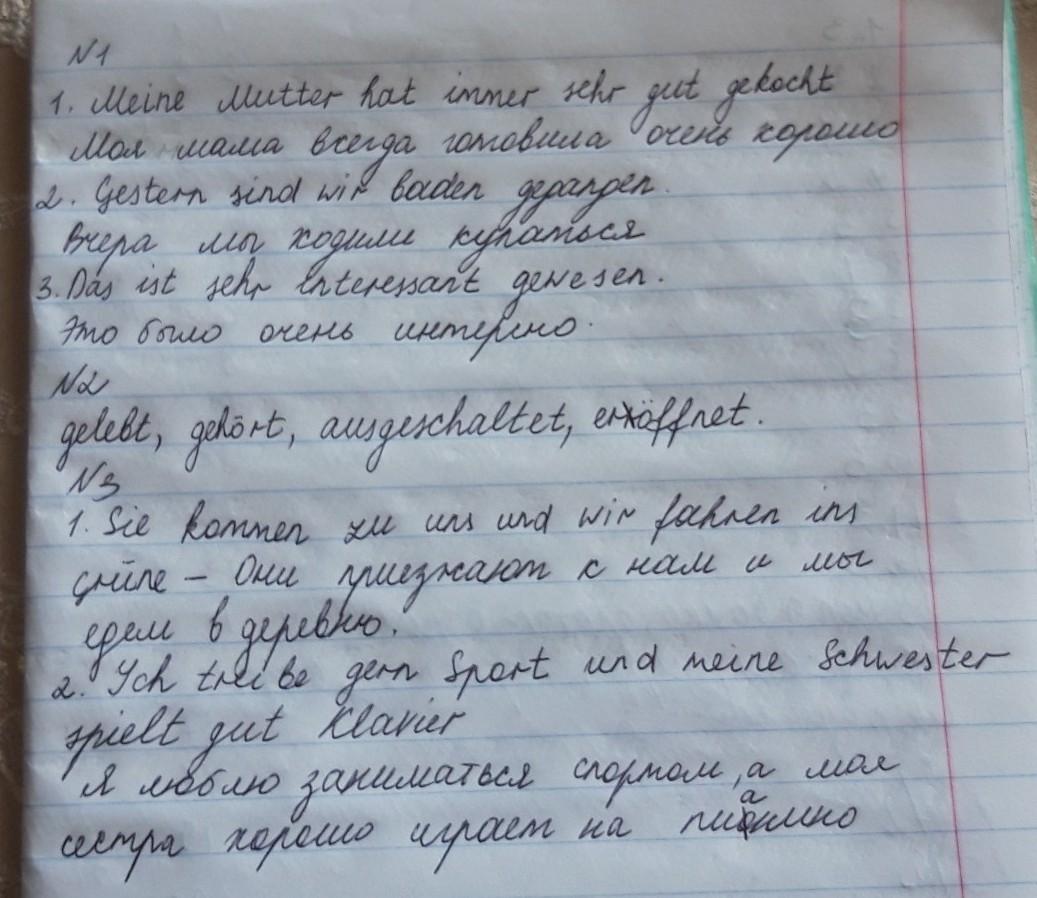 N1
1. Meine Mutter hat immer sehr gut gekocht
Моя мама всегда готовила очень хорошо
2. Gestern sind wir baden gegangen.
Вчера мы ходили купаться
3. Das ist sehr interessant gewesen.
Это было очень интерено.
N2
gelebt, gehört, ausgeschaltet, eröffnet.
N3
1. Sie kommen zu uns und wir fahren ins
Grüne – Они приезжают к нам и мы
едем в деревню.
2. Ych treibe gern Sport und meine Schwester
spielt gut Klavier
Я люблю заниматься спортом, а моя
сестра хорошо играет на пианино